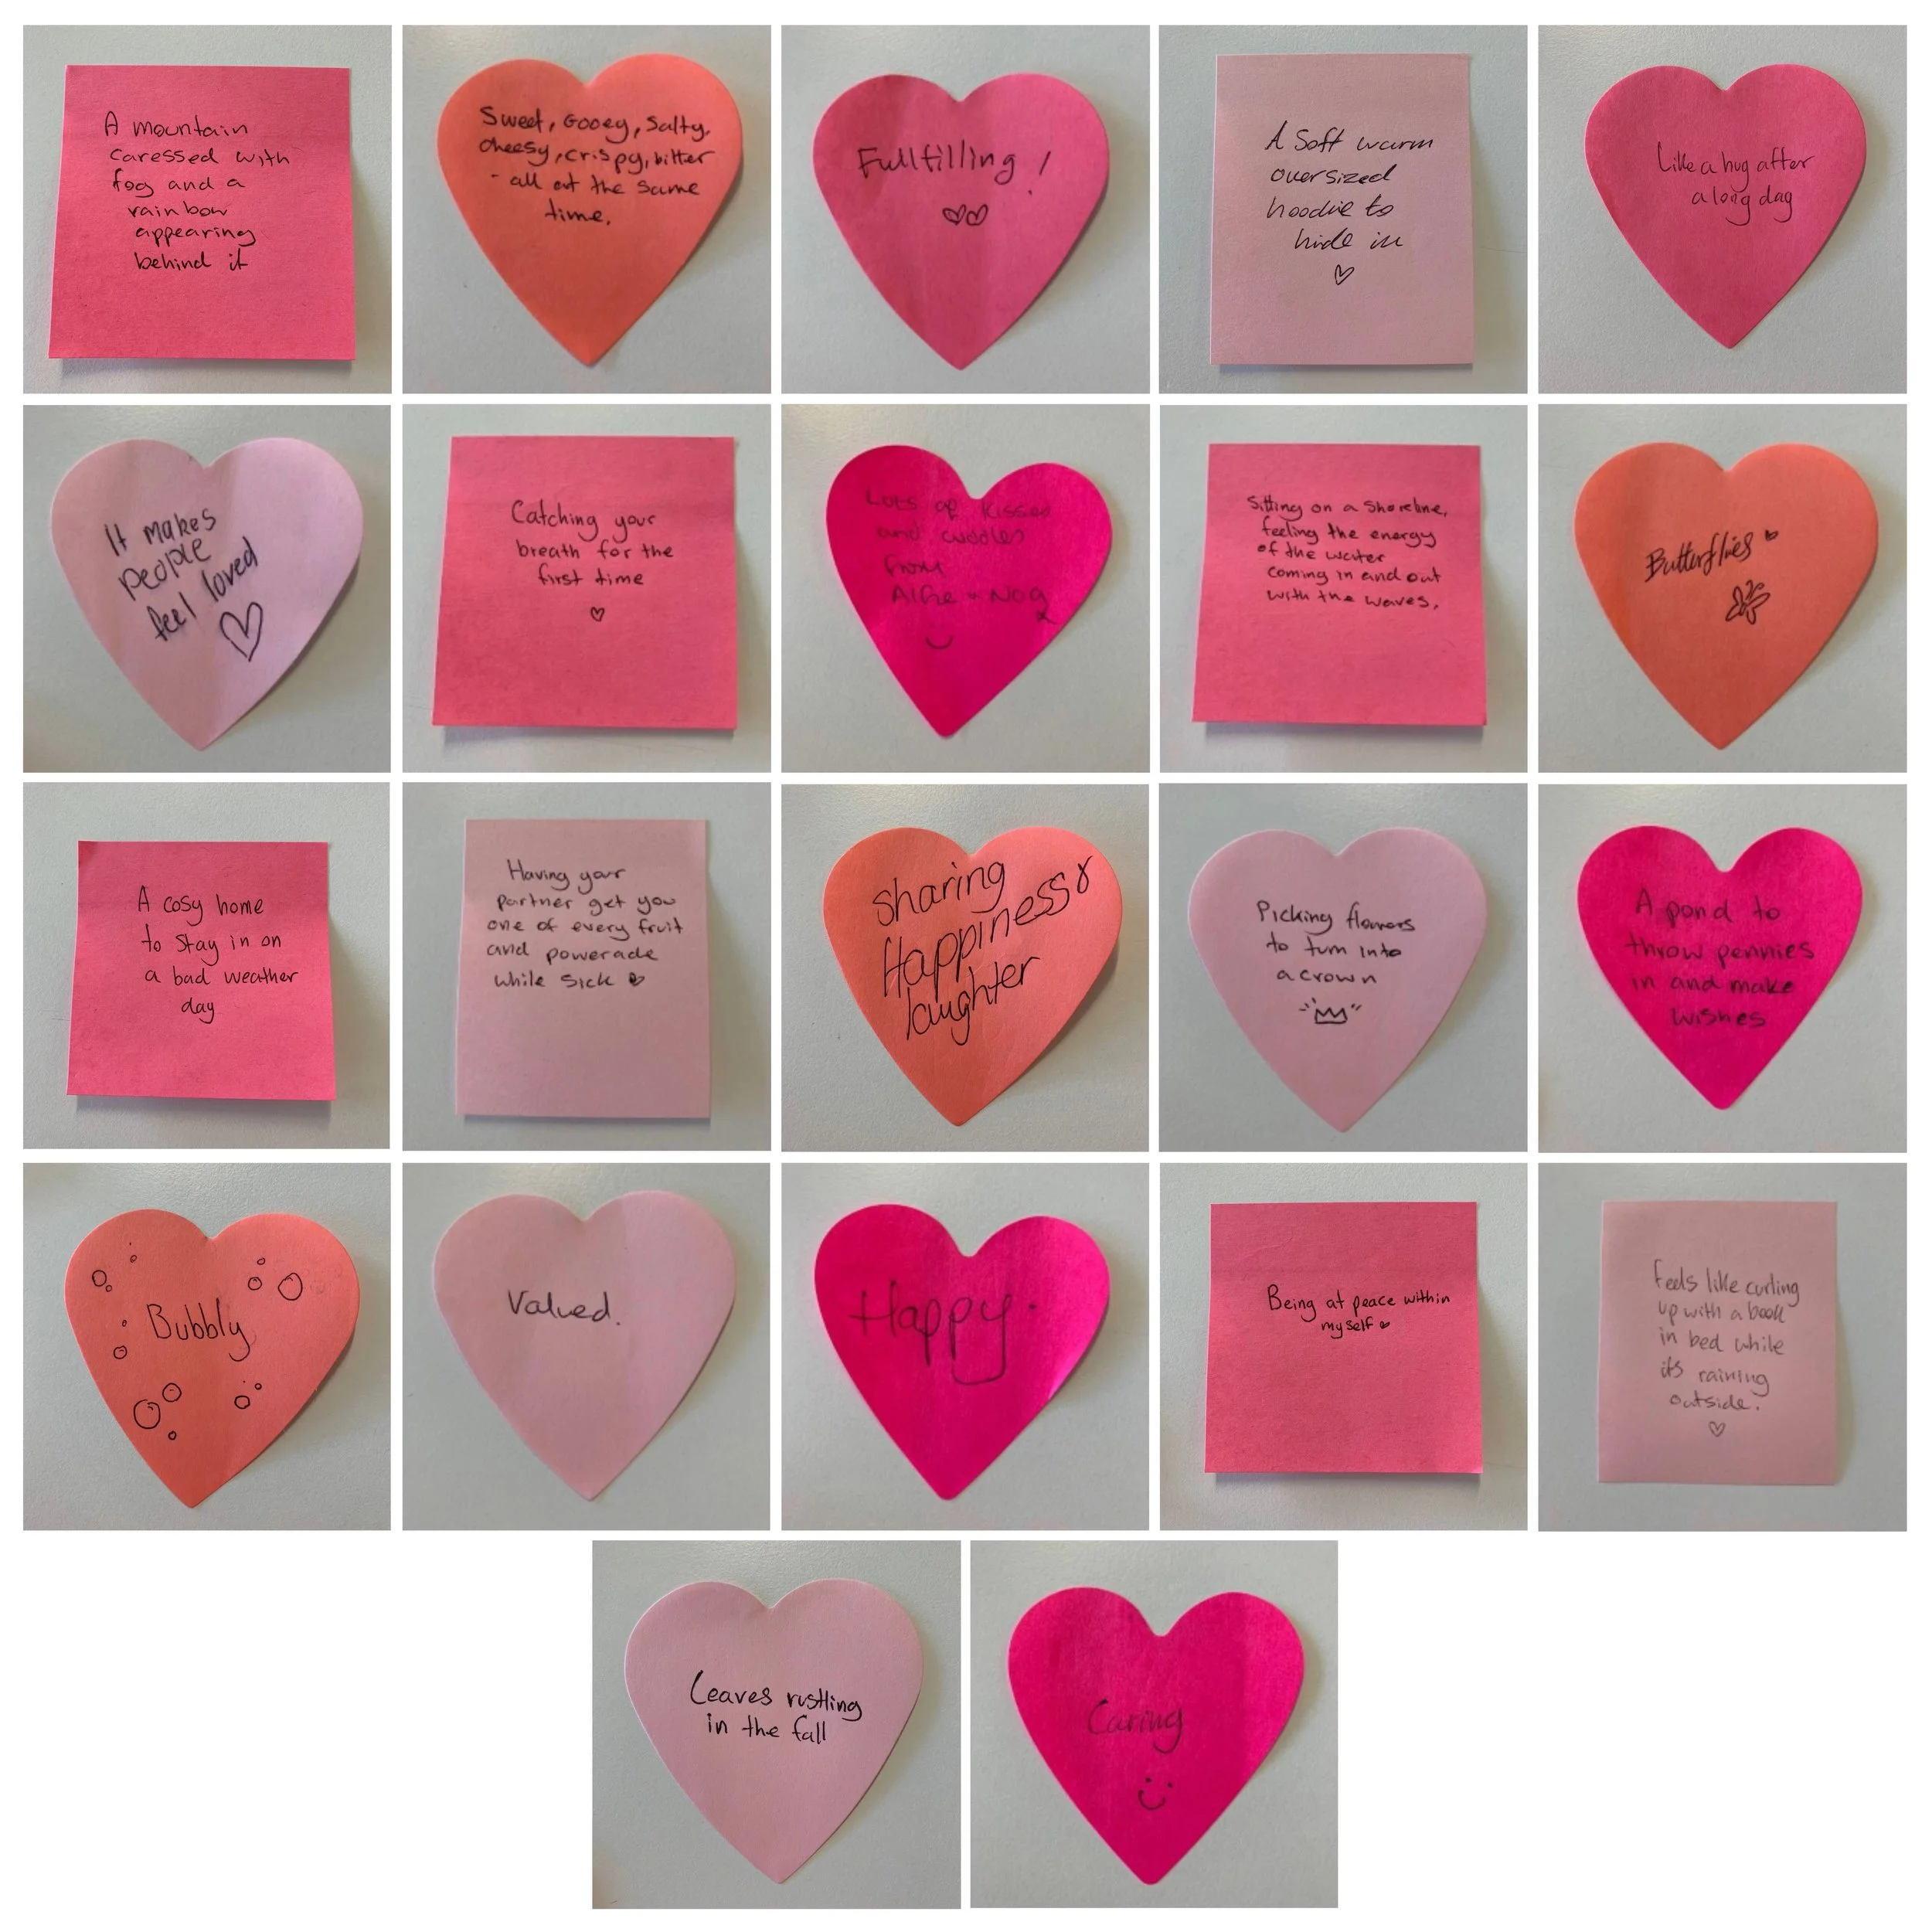 A mountain
caressed with
fog and a
rainbow
appearing
behind it
Sweet, Gooey, Salty,
cheesy, crispy, bitter
- all at the same
time.
Fullfilling!
A Soft warm
oversized
hoodie to
hide in
Like a hug after
a long day
It makes
people
feel loved
Catching your
breath for the
first time
Lots of kisses
and cuddles
from
Sitting on a Shoreline,
feeling the energy
of the water
coming in and out
with the waves.
Butterflies
A cosy home
to stay in on
a bad weather
day
Having your
partner get you
one of every fruit
and powerade
while sick
sharing
Happiness &
laughter
Picking flowers
to turn into
a crown
A pond to
throw pennies
in and make
wishes
Bubbly
Valued.
Happy.
Being at peace within
myself
Feels like curling
up with a book
in bed while
its raining
outside.
Leaves rustling
in the fall
Caring